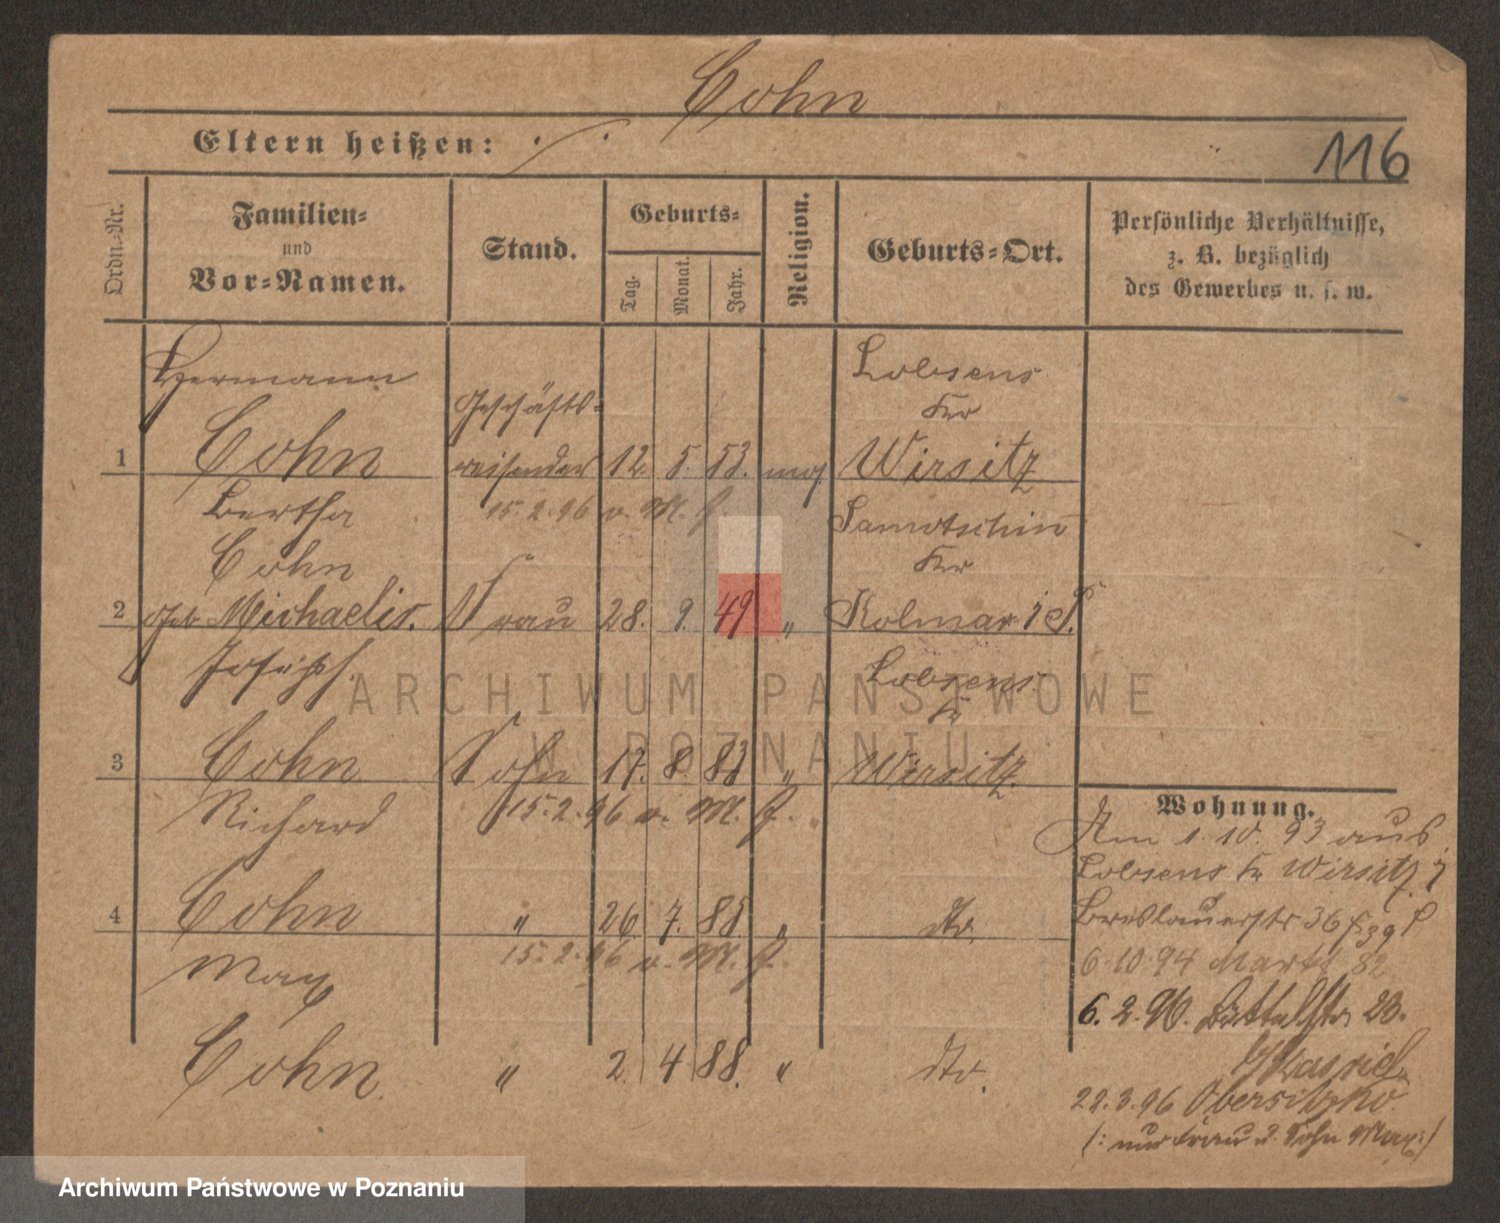 Cohn
Eltern heißen: ·/·
116
Ordn.-Nr.
Familien-
und
Vor-Namen.
Stand.
Geburts-
Tag.
Monat.
Jahr.
Religion.
Geburts-Ort.
Persönliche Verhältnisse,
z. B. bezüglich
des Gewerbes u. s. w.
Hermann
Lobsens
Geschäfts-
Kr
1 Cohn reisender 12. 5. 53. mos Wirsitz
Bertha 15.2.96 v. M. Samotschin
Cohn Kr
2 geb. Michaelis. Frau 28. 9. 49 " Kolmar i P.
Joseph. Lobsens
Kr
3 Cohn Sohn 17. 8. 83 " Wirsitz.
Richard 15.2.96 v. M.
4 Cohn " 26. 7. 85 " dto.
Max 15.2.96 v. M.
Cohn " 2. 4 88. " dto.
Wohnung.
Am 1.10.93 aus
Lobsens Kr Wirsitz.
Breslauerstr 36
6.10.94 Markt 82
6.2.96. Büttelstr 23.
22.3.96 Obersitzko.
(: nur Frau u. Sohn Max :)
ARCHIWUM PAŃSTWOWE
W POZNANIU
Archiwum Państwowe w Poznaniu